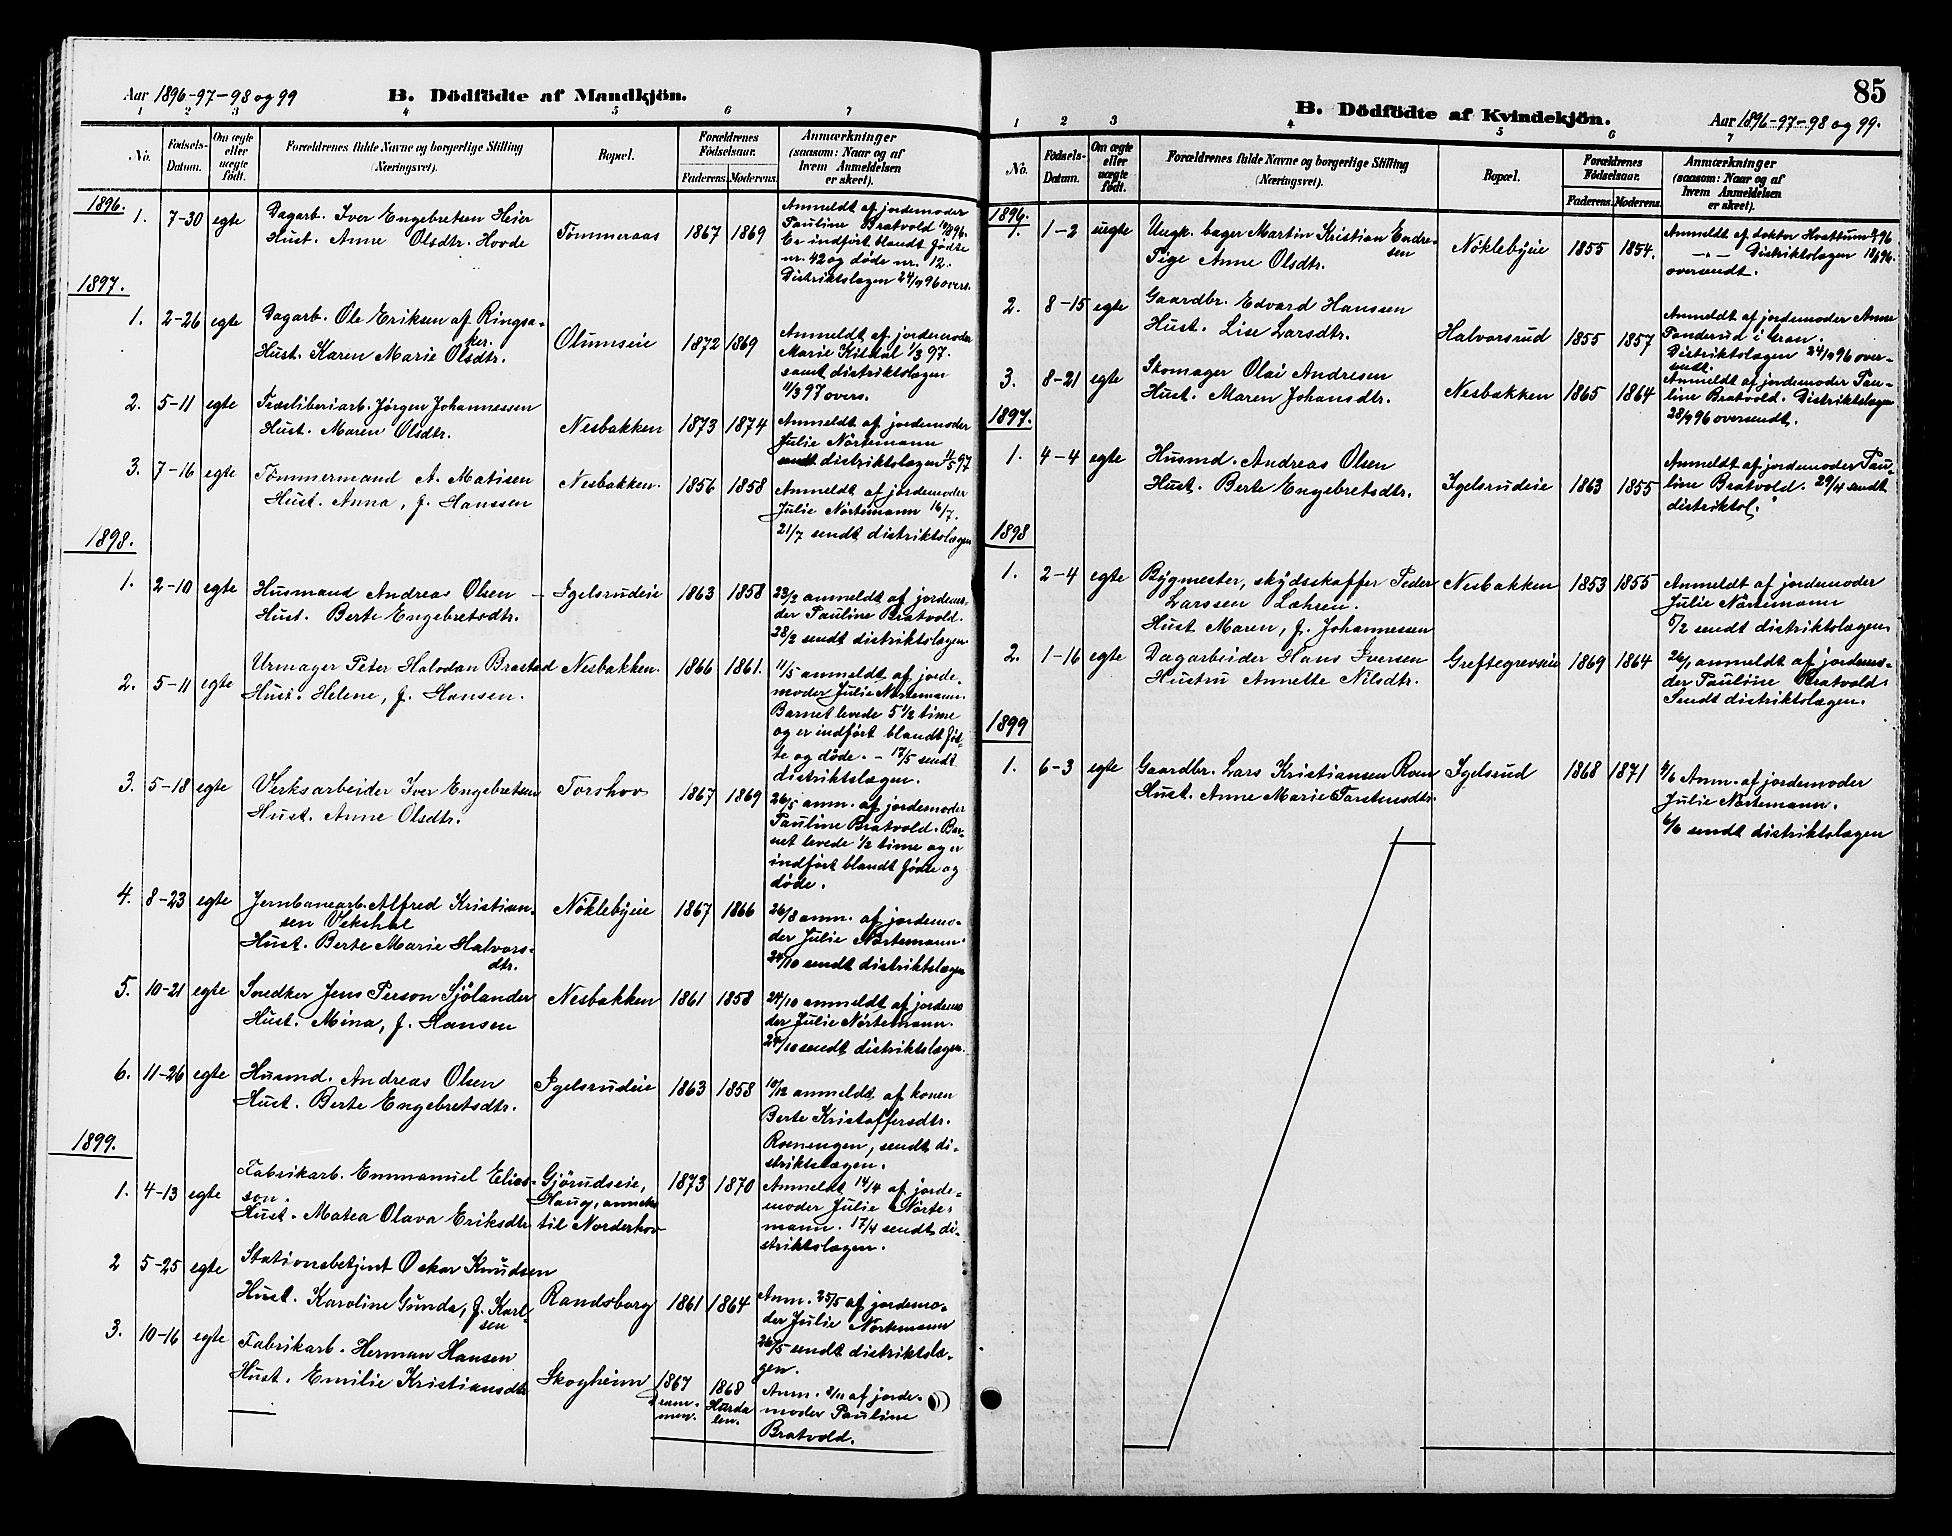 Aar 1896-97-98 og 99
B. Dödfödte af Mandkjön.
1 2 3 4 5 6 7
No.
Födsels-
Datum.
Om ægte
eller
uægte
födt.
Forældrenes fulde Navne og borgerlige Stilling
(Næringsvei).
Bopæl.
Forældrenes
Födselsaar.
Faderens. Moderens.
Anmærkninger
(saasom: Naar og af
hvem Anmeldelsen
er skeet).
1896.
1. 7-30 egte
Dagarb. Iver Engebretsen Heier
Hust. Anne Olsdtr. Hovde
Tømmeraas 1867 1869
Anmeldt af jordemoder
Pauline Bratvold
Er indført blandt fødte
nr. 42 og døde nr. 12.
Distriktslægen 24/9 96 overs.
1897.
1. 2-26 egte
Dagarb. Ole Eriksen af Ringsa-
ker.
Hust. Karen Marie Olsdtr.
Olumseie 1872 1869
Anmeldt af jordemoder
Marie Kithal 1/3 97.
samt distriktslægen
11/3 97 overs.
2. 5-11 egte
Træsliberiarb. Jørgen Johannessen
Hust. Maren Olsdtr.
Nesbakken 1873 1874
Anmeldt af jordemoder
Julie Nørtemann
sendt distriktslægen 11/5 97
3. 7-16 egte
Tømmermand A. Matisen
Hust. Anna, f. Hanssen
Nesbakken. 1856 1858
Anmeldt af jordemoder
Julie Nørtemann 16/7.
21/7 sendt distriktslægen
1898.
1. 2-10 egte
Husmand Andreas Olsen
Hust. Berte Engebretsdtr.
Igelsrudeie 1863 1858
23/2 anmeldt af jordemo-
der Pauline Bratvold.
28/2 sendt distriktslægen
2. 5-11 egte
Urmager Peter Halvdan Brasted
Hust. Helene, f. Hansen.
Nesbakken. 1866 1861.
11/5 anmeldt af jorde-
moder Julie Nørtemann.
Barnet levede 5 1/2 time
og er indført blandt fød-
te og døde. - 17/5 sendt
distriktslægen.
3. 5-18 egte
Verksarbeider Iver Engebretsen
Hust. Anne Olsdtr.
Torshov 1867 1869
26/5 anm. af jordemoder
Pauline Bratvold. Bar-
net levede 1/2 time og er
indført blandt fødte og
døde.
4. 8-23 egte
Jernbanearb. Alfred Kristian-
sen Vekshal
Hust. Berte Marie Halvors-
dtr.
Nøklebyeie 1867 1866
26/8 anm. af jordemo-
der Julie Nørtemann.
24/10 sendt distriktslægen
5. 10-21 egte
Snedker Jens Person Sjölander
Hust. Mina, f. Hansen
Nesbakken 1861 1858
24/10 anmeldt af jordemo
der Julie Nørtemann.
24/10 sendt distriktslægen.
6. 11-26 egte
Husmd. Andreas Olsen
Hust. Berte Engebretsdtr.
Igelsrudeie 1863 1858
10/12 anmeldt af konen
Berte Kristoffersdtr.
Roenengen, sendt di-
striktslægen.
1899.
1. 4-13 egte
Fabrikarb. Emmanuel Elias-
son.
Hust. Matea Olava Eriksdtr
Gjørudseie,
Haug, anneks
til Norderhov
1873 1870
Anmeldt 14/4 af jorde-
moder Julie Nørte-
mann. 17/4 sendt di-
striktslægen.
2 5-25 egte
Stationsbetjent Oskar Knudsen
Hust. Karoline Gunda, f. Karl-
sen
Randsborg 1861 1864
Anm. 25/5 af jordemo-
der Julie Nørtemann
26/5 sendt distriktslæ-
gen.
3. 10-16 egte
Fabrikarb. Herman Hansen
Hust. Emilie Kristiansdtr
Skogheim
1867
Dram-
men.
1868
Hurda
len.
Anm. 2/11 af jorde-
moder Pauline
Bratvold.
85
B. Dödfödte af Kvindekjön.
Aar 1896-97-98 og 99.
1 2 3 4 5 6 7
No.
Födsels-
Datum.
Om ægte
eller
uægte
födt.
Forældrenes fulde Navne og borgerlige Stilling
(Næringsvei).
Bopæl.
Forældrenes
Födselsaar.
Faderens. Moderens.
Anmærkninger
(saasom: Naar og af
hvem Anmeldelsen
er skeet).
1896.
1. 1-2 uegte
Ungk. bager Martin Kristian Endre-
sen
Pige Anne Olsdtr.
Nøklebyeie 1855 1854.
Anmeldt af doktor Hvattum
-"- Distriktslægen
oversendt.
2. 8-15 egte
Gaardbr. Edvard Hanssen
Hust. Lise Larsdtr.
Halvorsrud 1855 1857
Anmeldt af jordemoder Anne
Panderud i Gran.
Distriktslægen 24/9 96 over-
sendt.
3. 8-21 egte
Skomager Olai Andresen
Hust. Maren Johansdtr.
Nesbakken 1865 1864
Anmeldt af jordemoder Pau-
line Bratvold. Distriktslægen
28/9 96 oversendt.
1897.
1. 4-4 egte
Husmd. Andreas Olsen
Hust. Berte Engebretsdtr.
Igelsrudeie 1863 1855
Anmeldt af jordemoder Pau-
line Bratvold. 29/4 sendt
distriktsl.
1898
1. 2-4 egte
Bygmester, skydsskaffer Peder
Larssen Læhsen.
Hust Maren, f. Johannessen
Nesbakken 1853 1855
Anmeldt af jordemoder
Julie Nørtemann
5/2 sendt distriktslægen.
2. 1-16 egte
Dagarbeider Hans Iversen
Hustru Annette Nilsdtr.
Greftegreveie 1869 1864
26/1 anmeldt af jordemo-
der Pauline Bratvold.
Sendt distriktslægen.
1899
1. 6-3 egte
Gaardbr. Lars Kristiansen Roen
Hust. Anne Marie Torstensdtr.
Igelsrud 1868 1871
4/6 Anm. af jordemoder
Julie Nørtemann.
6/6 sendt distriktslægen